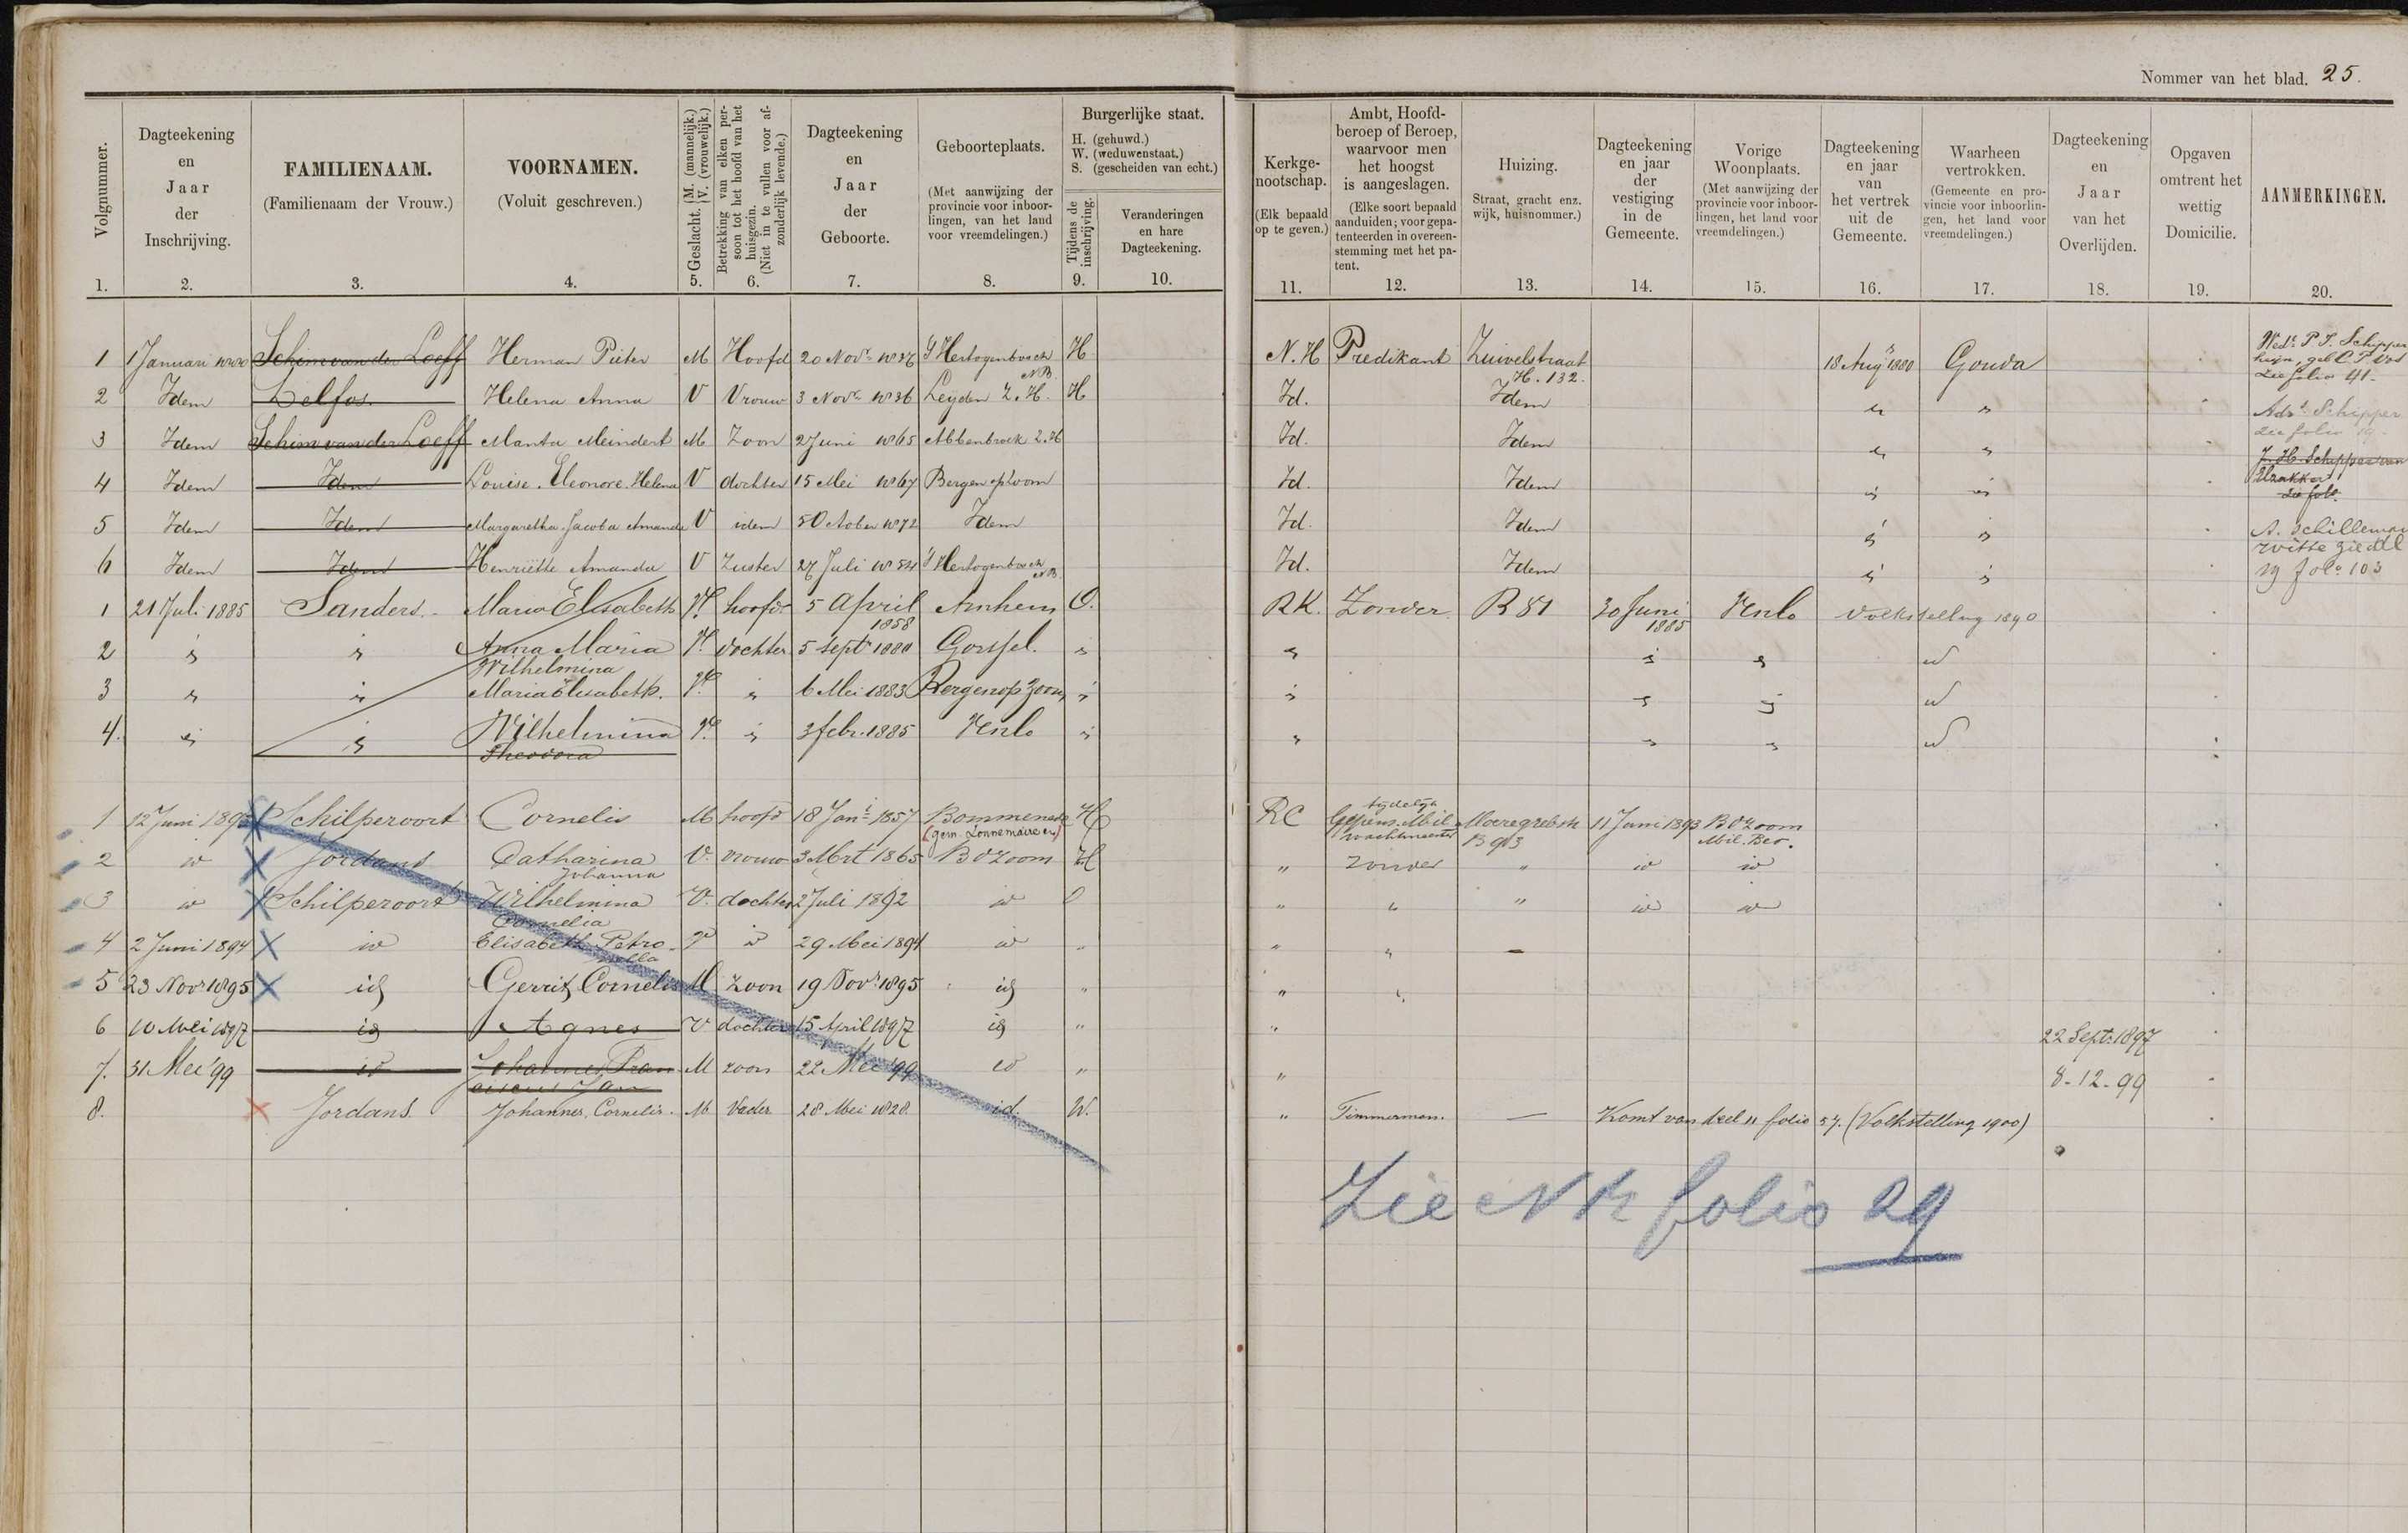 Nommer van het blad. 25.
Volgnummer. 1.
Dagteekening en Jaar der Inschrijving. 2.
FAMILIENAAM. (Familienaam der Vrouw.) 3.
VOORNAMEN. (Voluit geschreven.) 4.
Geslacht. M. (mannelijk.) V. (vrouwelijk.) 5.
Betrekking van elken persoon tot het hoofd van het huisgezin. (Niet in te vullen voor afzonderlijk levende.) 6.
Dagteekening en Jaar der Geboorte. 7.
Geboorteplaats. (Met aanwijzing der provincie voor inboorlingen, van het land voor vreemdelingen.) 8.
Burgerlijke staat. H. (gehuwd.) W. (weduwenstaat.) S. (gescheiden van echt.)
Tijdens de inschrijving. 9.
Veranderingen en hare Dagteekening. 10.
Kerkgenootschap. (Elk bepaald op te geven.) 11.
Ambt, Hoofdberoep of Beroep, waarvoor men het hoogst is aangeslagen. (Elke soort bepaald aanduiden; voor gepatenteerden in overeenstemming met het patent. 12.
Huizing. Straat, gracht enz. wijk, huisnommer.) 13.
Dagteekening en jaar der vestiging in de Gemeente. 14.
Vorige Woonplaats. (Met aanwijzing der provincie voor inboorlingen, het land voor vreemdelingen.) 15.
Dagteekening en jaar van het vertrek uit de Gemeente. 16.
Waarheen vertrokken. (Gemeente en provincie voor inboorlingen, het land voor vreemdelingen.) 17.
Dagteekening en Jaar van het Overlijden. 18.
Opgaven omtrent het wettig Domicilie. 19.
AANMERKINGEN. 20.
1 1 Januari 1880 Schim van der Loeff Herman Pieter M Hoofd 20 Novr 1836 's Hertogenbosch NB. H N.H Predikant Zuivelstraat H. 132. 18 Augs 1880 Gouda
2 Idem Delfos Helena Anna V Vrouw 3 Novr 1836 Leyden Z.H. H Id. Idem " "
3 Idem Schim van der Loeff Manta Meindert M Zoon 2 Juni 1865 Abbenbroek Z.H Id. Idem " "
4 Idem Idem Louise Eleonore Helena V dochter 15 Mei 1867 Bergen op Zoom Id. Idem " "
5 Idem Idem Margaretha Jacoba Amanda V idem 5 October 1872 Idem Id. Idem " "
6 Idem Idem Henriëtte Amanda V Zuster 27 Juli 1834 's Hertogenbosch NB. Id. Idem " "
Wede P. J. Schipper
zie folio 41.
Adr. Schipper
zie folio 19
J. H. Schipper van
zie fol.
A. Schilleman
witte zie dl
19 folo 103
1 21 Juli 1885 Sanders. Maria Elisabeth V. hoofd 5 April 1858 Arnhem O. RK. Zonder R 81 30 Juni 1885 Venlo Volkstelling 1890
2 " " Anna Maria Wilhelmina V. dochter 5 Sept 1880 Gorssel. " " " " id
3 " " Maria Elisabeth. V. " 6 Mei 1883 Bergen op Zoom " " " " id
4. " " Wilhelmina Theodora V. " 3 febr. 1885 Venlo " " " " id
1 12 Juni 1893 Schilperoort Cornelis M hoofd 18 Jani 1857 Bommenede (gem. Zonnemaire) H RC tijdelijk Gepens. Mil. wachtmeester Moeregrebstr B 903 11 Juni 1893 BoZoom Mil. Bev.
2 id Jordans Catharina Johanna V. vrouw 3 Mrt 1865 BoZoom H " zonder " id id
3 id Schilperoort Wilhelmina Cornelia V. dochter 2 Juli 1892 id O " " " id id
4 2 Juni 1894 id Elisabeth Petronella V id 29 Mei 1894 id " " " —
5 23 Novr 1895 id Gerrit Cornelis M zoon 19 Novr 1895 id " " "
6 10 Mei 1897 id Agnes V dochter 15 April 1897 id " " 22 Sept. 1897
7. 31 Mei '99 id Johannes Franciscus Jan M zoon 22 Mei '99 id " " 8-12-99
8. Jordans Johannes Cornelis. M Vader 28 Mei 1828. id. W. " Timmerman. — Komt van deel 11 folio 57. (Volkstelling 1900)
Zie N R folio 29